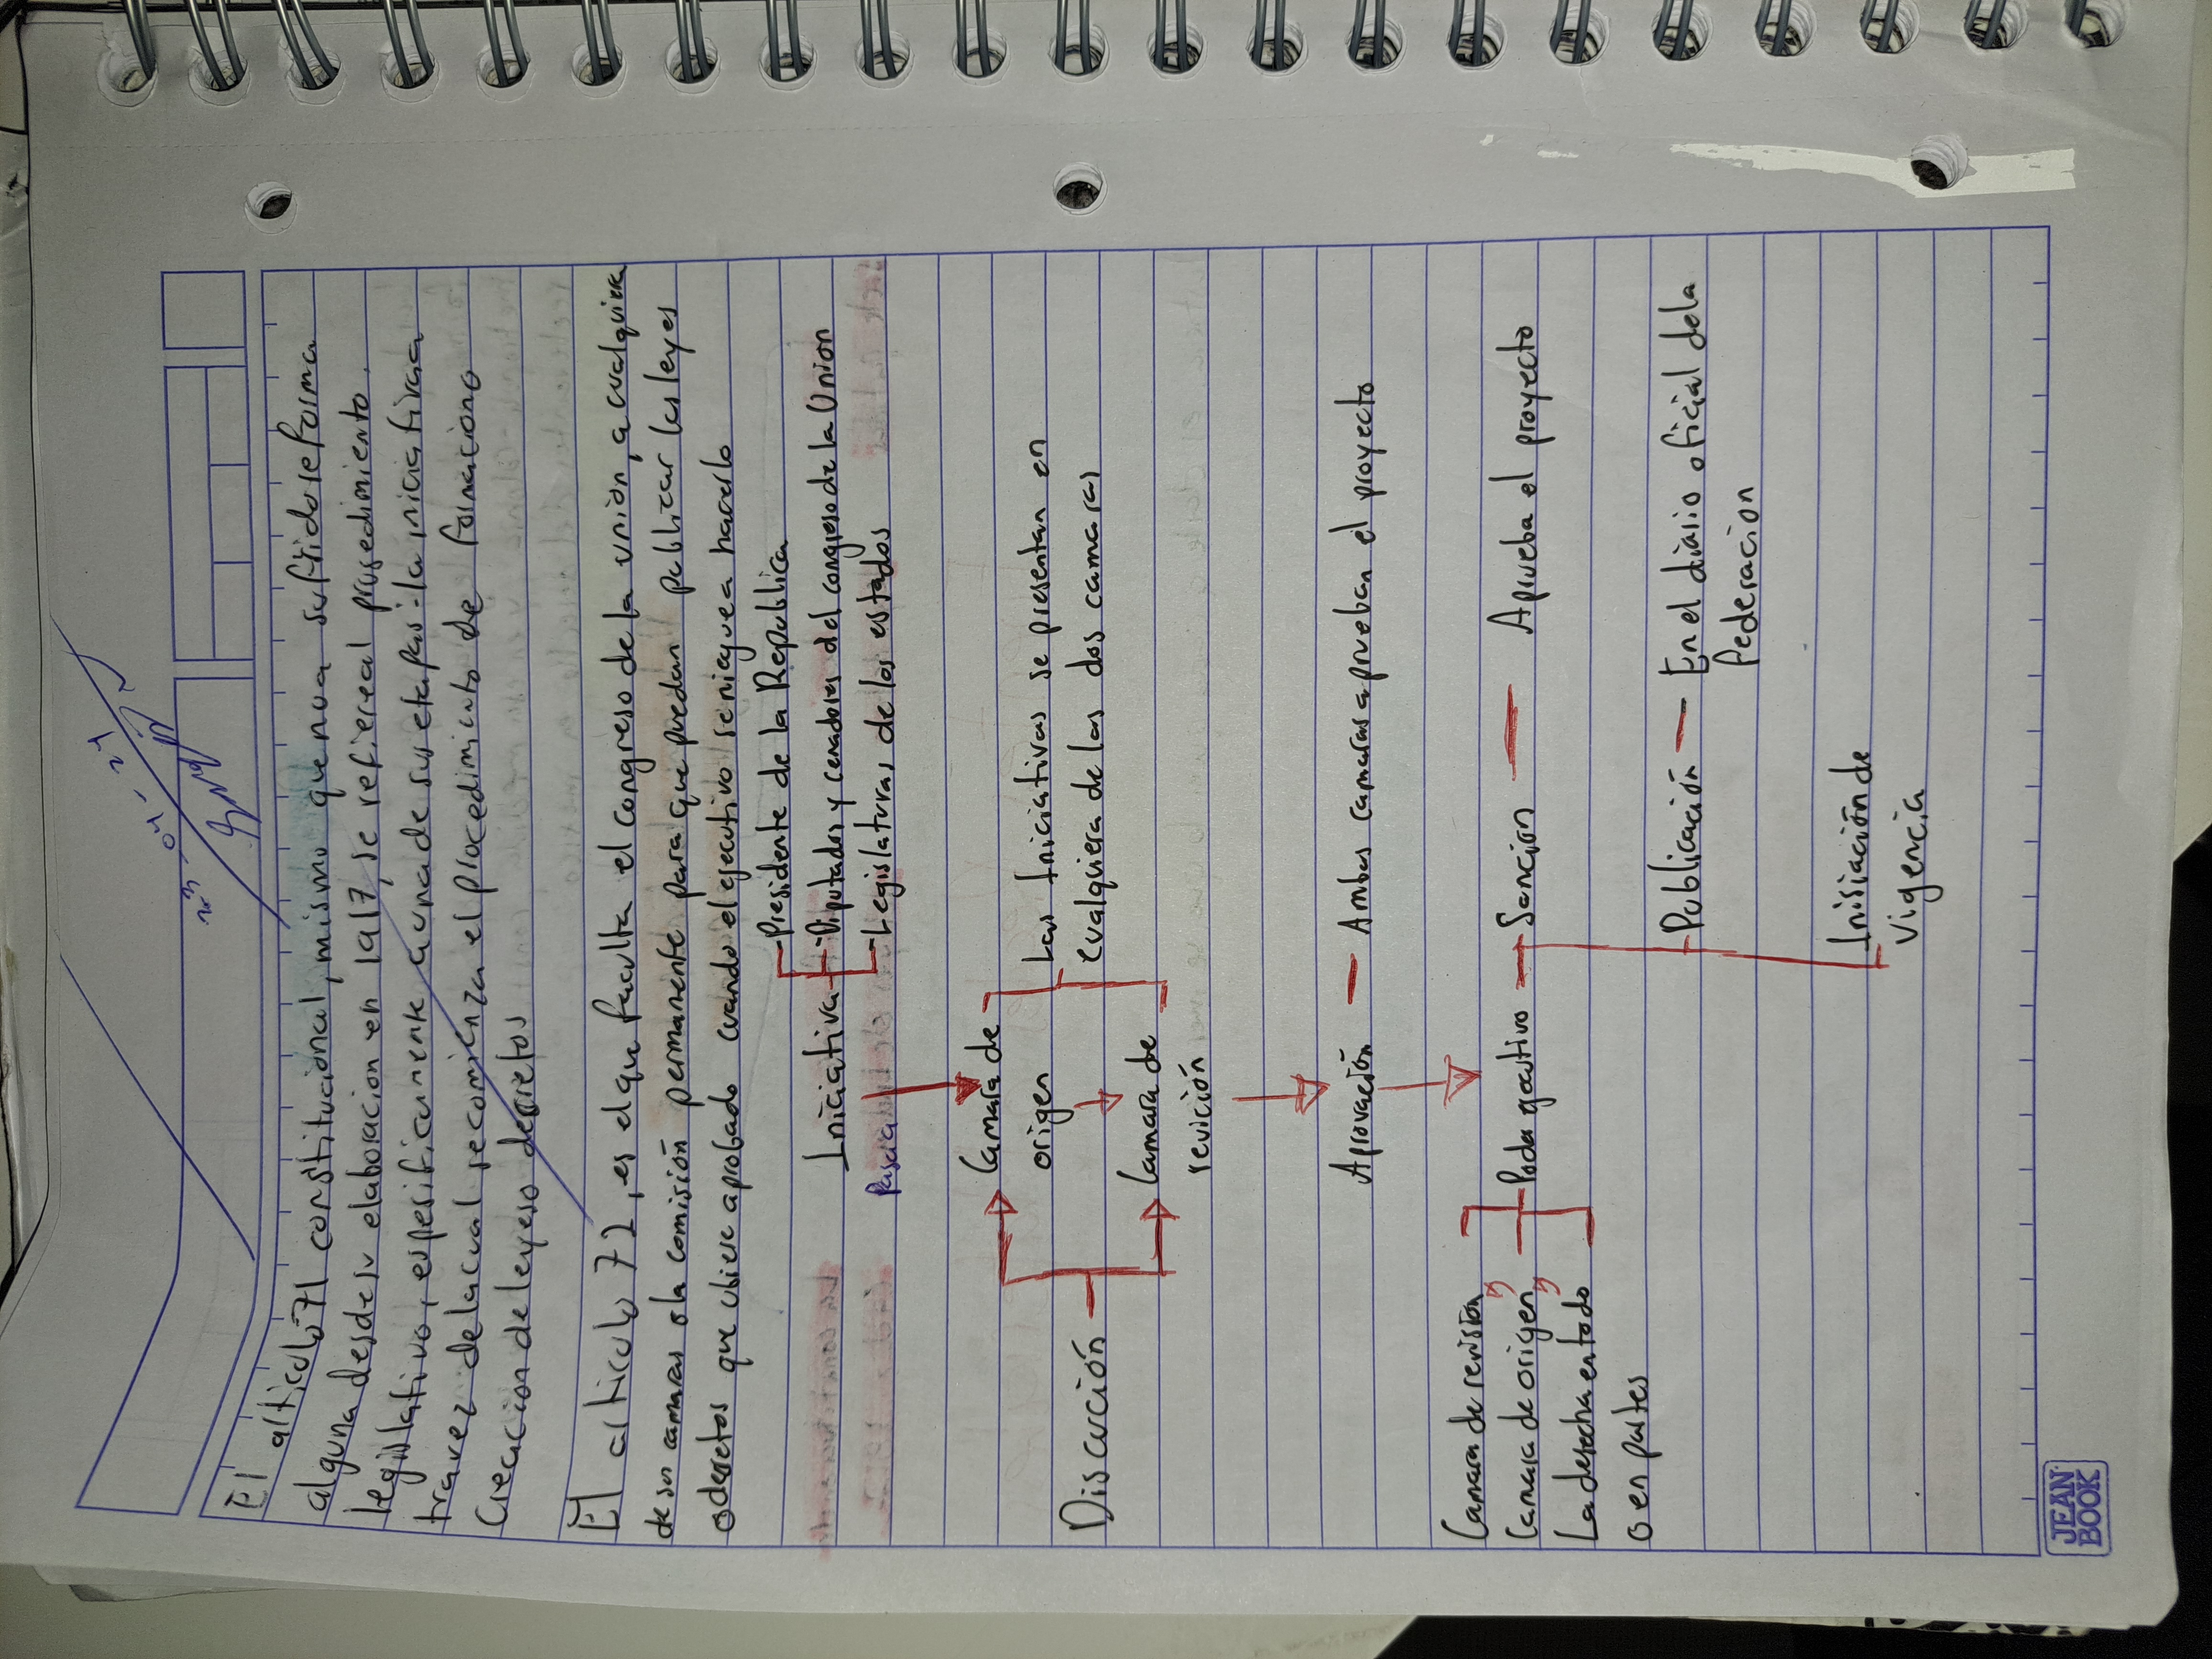 23-04-24
El articulo 71 constituciónal, mismo que nua sufrido reforma
alguna desde su elaboracion en 1917, se refiereal prosedimiento
legislativo, espesificamente a una de sus etapas: la iniciativa
travez de la cual se comienza el procedimiento de formaciono
Creacion de leyes o decretos
El articulo 72, es el que faculta el congreso de la unión, a cualquiera
de sus camaras o la comisión permanente para que puedan publicar las leyes
o decretos que ubiere aprobado cuando el ejecutivo se niegue a hacerlo
Presidente de la Republica
Iniciativa Diputados y cenadores del congreso de la Union
Legislaturas de los estados
Camara de
origen
Las Iniciativas se presentan en
cualquiera de las dos camaras
Discución
Camara de
revición
Aprovación — Ambas camaras aprueban el proyecto
Camara de revisión
Camara de origen
La desecha en todo
o en partes
Poder ejecutivo — Sancion — Aprueba el proyecto
Publicación — En el diario oficial dela
Federacion
Inisiación de
vigencia
JEAN
BOOK